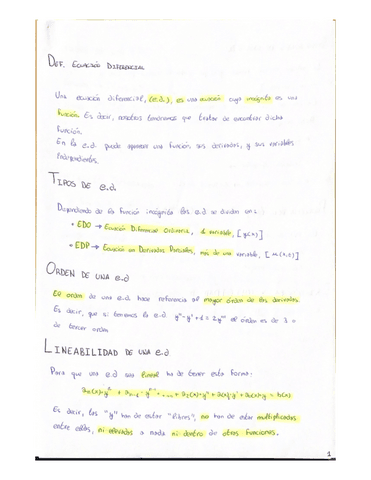 DEF. ECUACIÓN DIFERENCIAL
Una ecuación diferencial, (e.d.), es una ecuación cuya incógnita es una
función. Es decir, nosotros tendremos que tratar de encontrar dicha
función.
En la e.d. puede aparecer una función sus derivadas, y sus variables
independientes.
TIPOS DE e.d
Dependiendo de la función incógnita las e.d se dividen en:
• EDO → Ecuación Diferencial Ordinaria, 1 variable, [y(x)]
• EDP → Ecuación en Derivadas Parciales, más de una variable, [u(x,t)]
ORDEN DE UNA e.d
El orden de una e.d hace referencia al mayor orden de las derivadas.
Es decir, que si tenemos la e.d el orden es de 3 o
de tercer orden
LINEABILIDAD DE UNA e.d
Para que una e.d sea lineal ha de tener esta forma:
Es decir, las "y" han de estar "libres", no han de estar multiplicadas
entre ellas, ni elevadas a nada ni dentro de otras funciones.
1